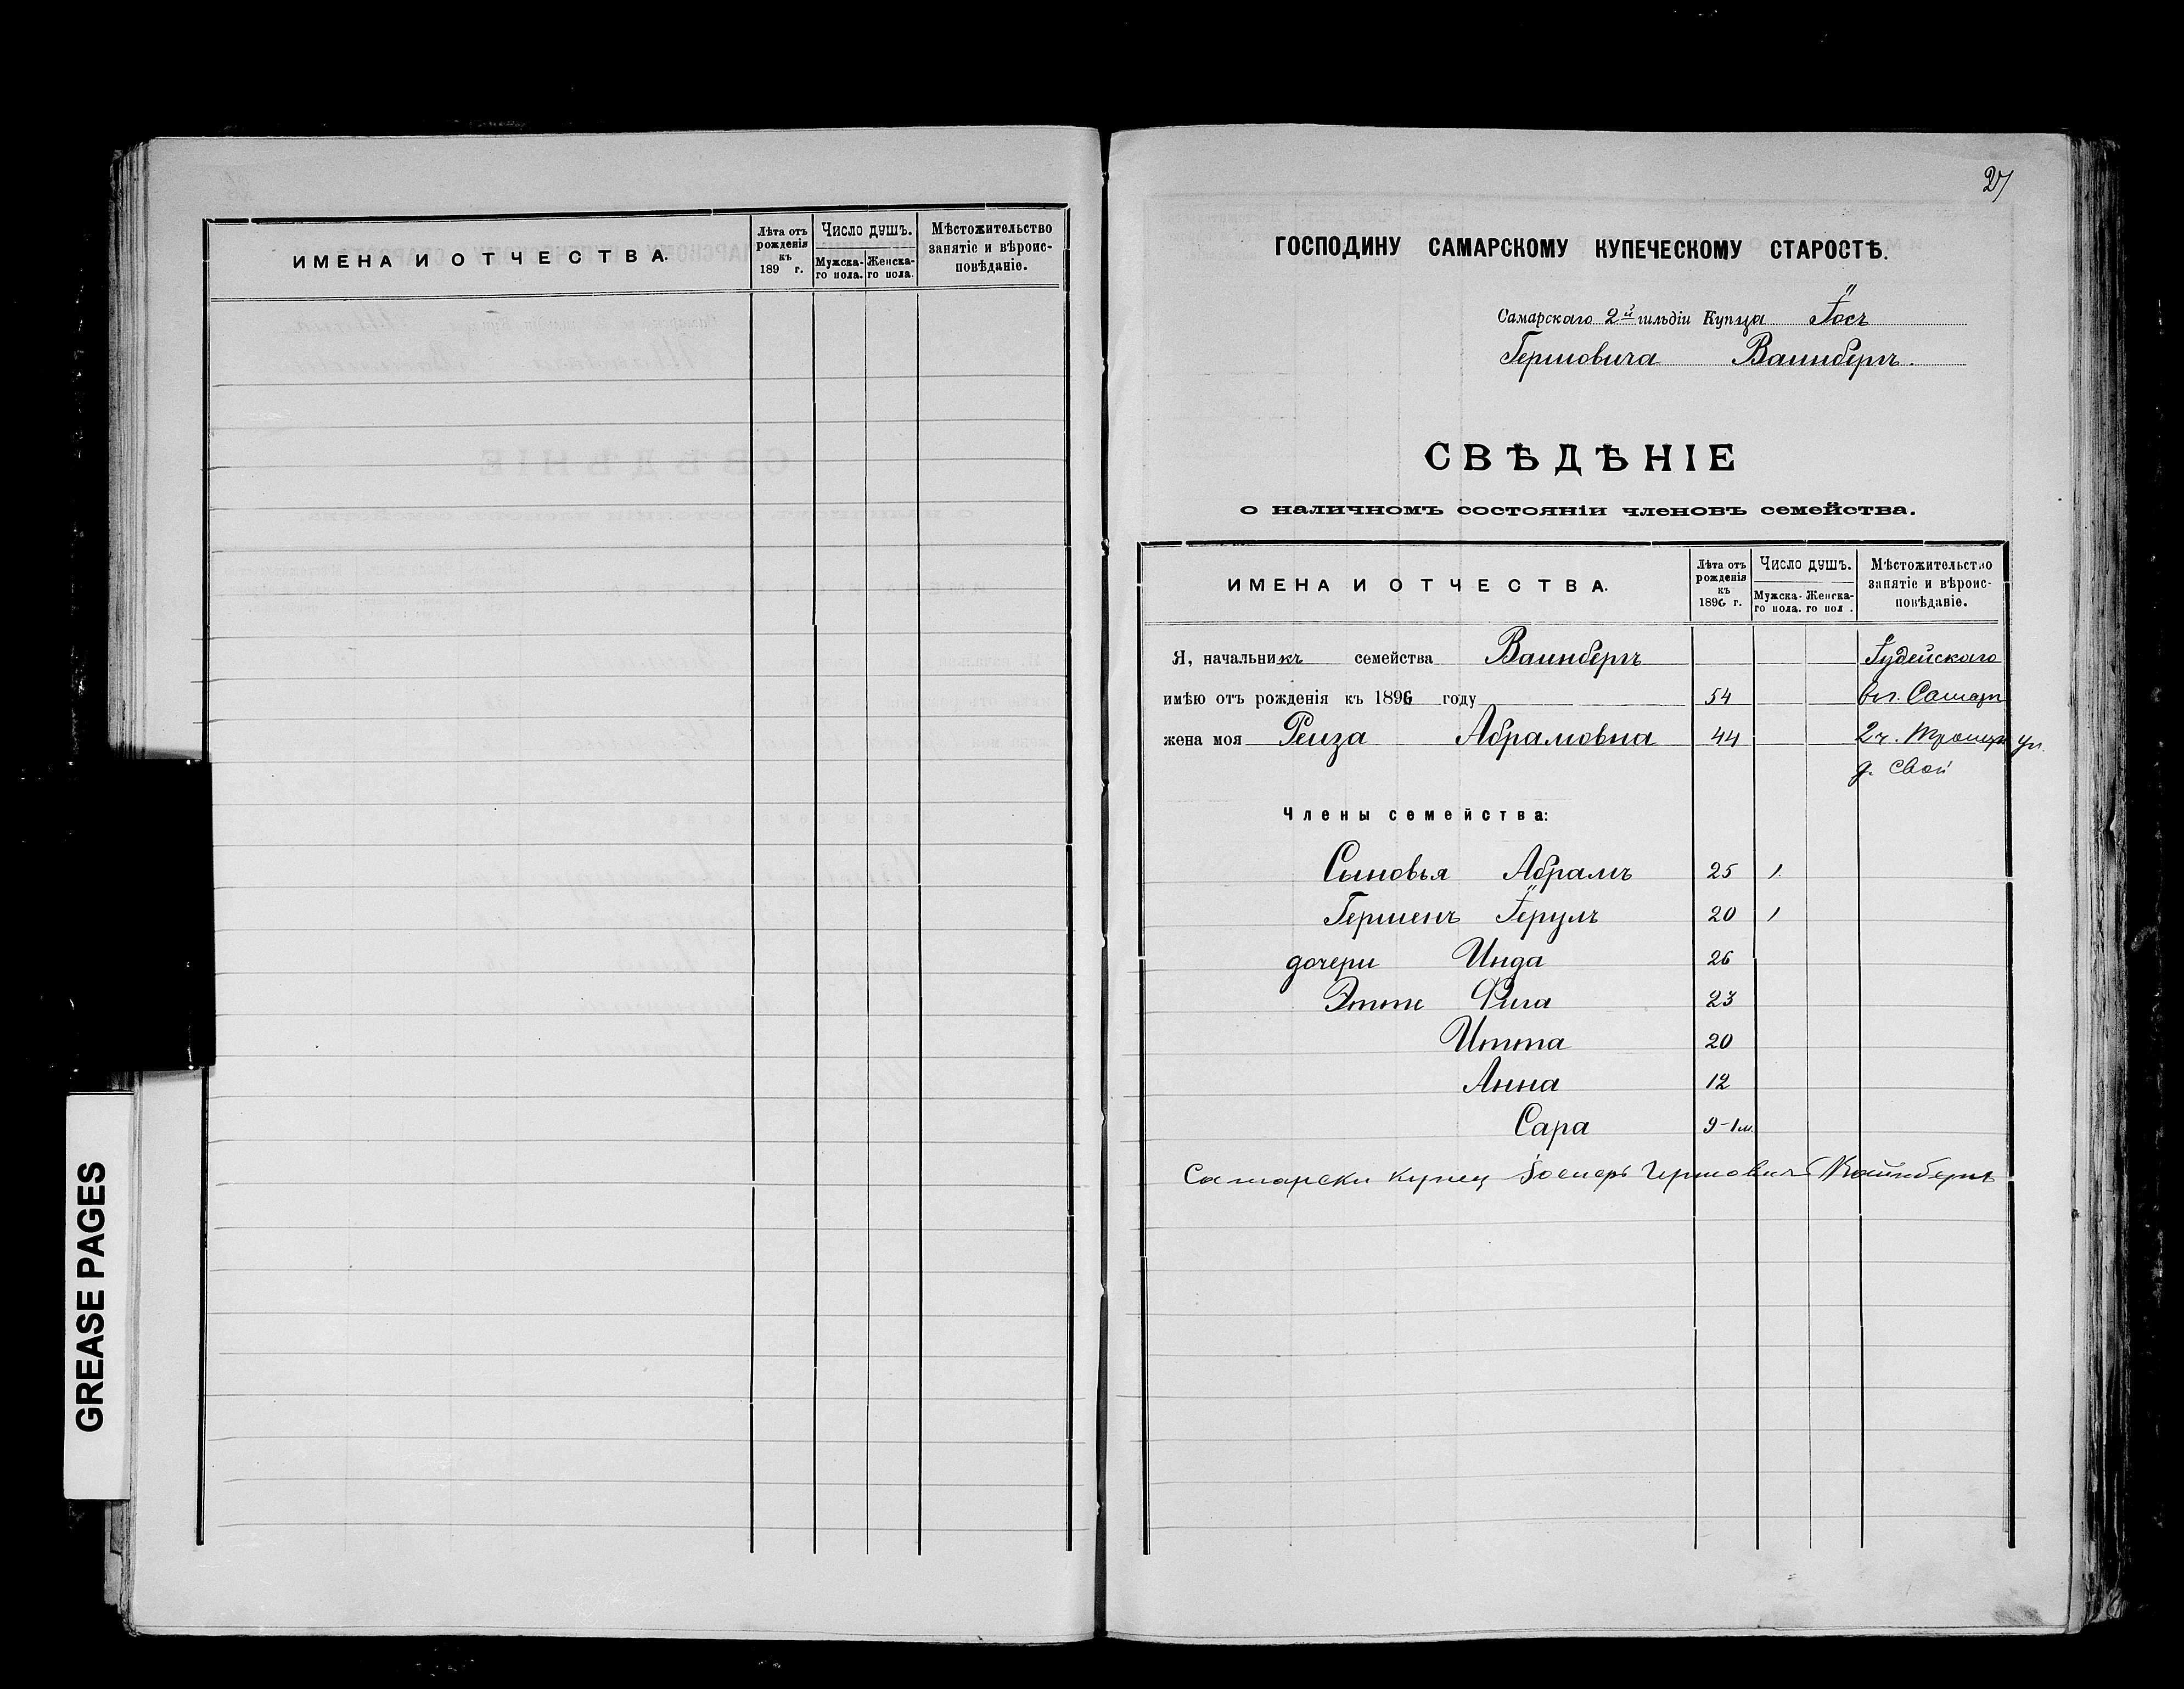 ИМЕНА И ОТЧЕСТВА.
Лѣта отъ рожденія къ 189 г.
Число душъ.
Мужска-го пола.
Женска-го пола.
Мѣстожительство занятіе и вѣроис-повѣданіе.
GREASE PAGES
27
ГОСПОДИНУ САМАРСКОМУ КУПЕЧЕСКОМУ СТАРОСТѢ.
Самарскаго 2й гильдіи Купца Іосъ
Гершовича Ваинбергъ.
СВѢДѢНІЕ
о наличномъ состояніи членовъ семейства.
ИМЕНА И ОТЧЕСТВА.
Лѣта отъ рожденія къ 1896 г.
Число душъ.
Мужска-го пола.
Женска-го пол .
Мѣстожительство занятіе и вѣроис-повѣданіе.
Я, начальникъ семейства Ваинбергъ Іудейскаго
имѣю отъ рожденія къ 1896 году 54 вг. Самар
жена моя Реиза Абрамовна 44 2ч. Троицк ул.
д. свой
Члены семейства:
Сыновья Абрамъ 25 1.
Гершенъ Іерулъ 20 1
дочери Инда 26
Этте Фига 23
Итта 20
Анна 12
Сара 9-1м.
Самарски купец Гершовичъ Вайнбергъ